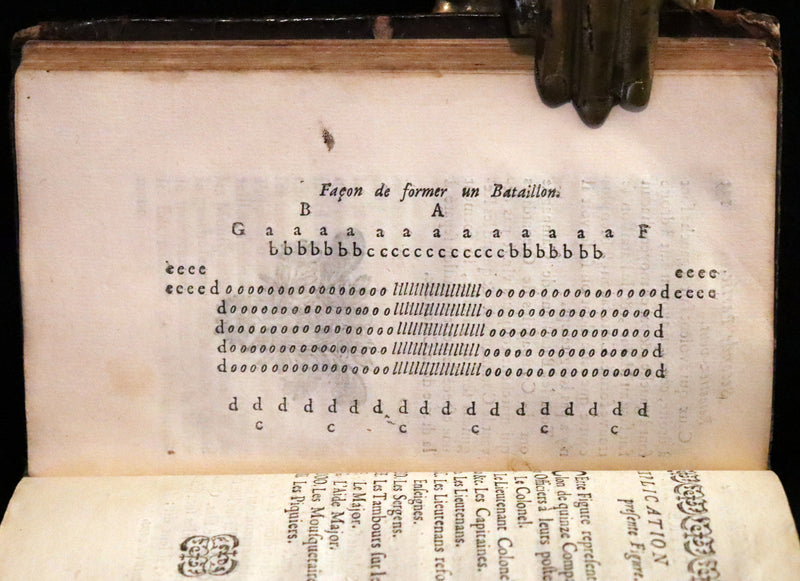 Façon de former un Bataillon.
B A
G a a a a a a a a a a a a a F
bbbbbbbccccccccccccbbbbbbbb
eeee eeee
eeeedooooooooooooolllllllllllllllllooooooooooooodeeee
dooooooooooooolllllllllllllllllooooooooooooood
dooooooooooooolllllllllllllllllooooooooooooood
dooooooooooooolllllllllllllllllooooooooooooood
dooooooooooooolllllllllllllllllooooooooooooood
d d d d d d d d d d d d d d d d d d
c c c c c c
PLICATION
presente Figure.
Figure represen
lon de quinze Comp
Officiers à leurs poste
Le Colonel.
Le Lieutenant Colone
Les Capitaines.
Les Lieutenans.
Les Lieutenans refo
Enseignes.
Les Sergens.
Les Tambours sur l
Le Major.
L'Aide Major.
00. Les Mousquetaire
Les Piquiers.